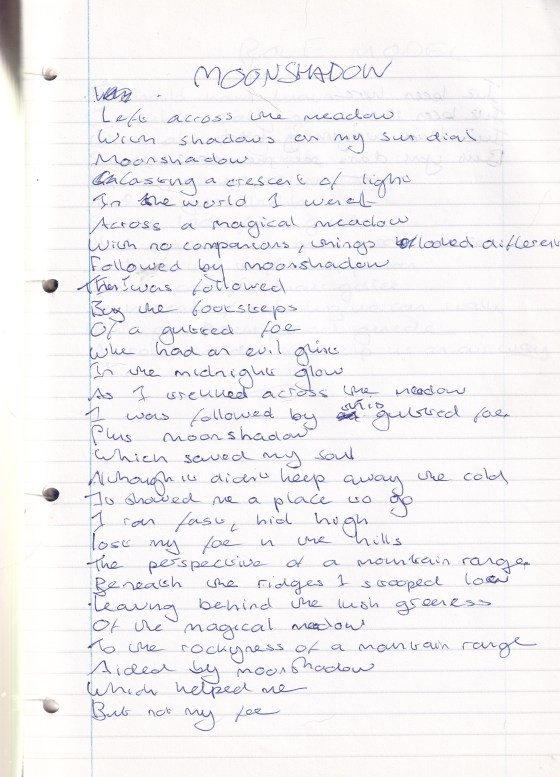 MOONSHADOW
Left across the meadow
With shadows on my sun dial
Moonshadow
Casting a crescent of light
In the world I went
Across a magical meadow
With no companions, things looked different
Followed by moonshadow
Then I was followed
By the footsteps
Of a gutted foe
Who had an evil grin
In the midnight glow
As I trekked across the meadow
I was followed by this gutted foe
Plus moonshadow
Which saved my soul
Although it didn't keep away the cold
It showed me a place to go
I ran fast, hid high
lost my foe in the hills
The perspective of a mountain range
Beneath the ridges I stooped low
Leaving behind the lush greeness
Of the magical meadow
To the rockyness of a mountain range
Aided by moonshadow
Which helped me
But not my foe